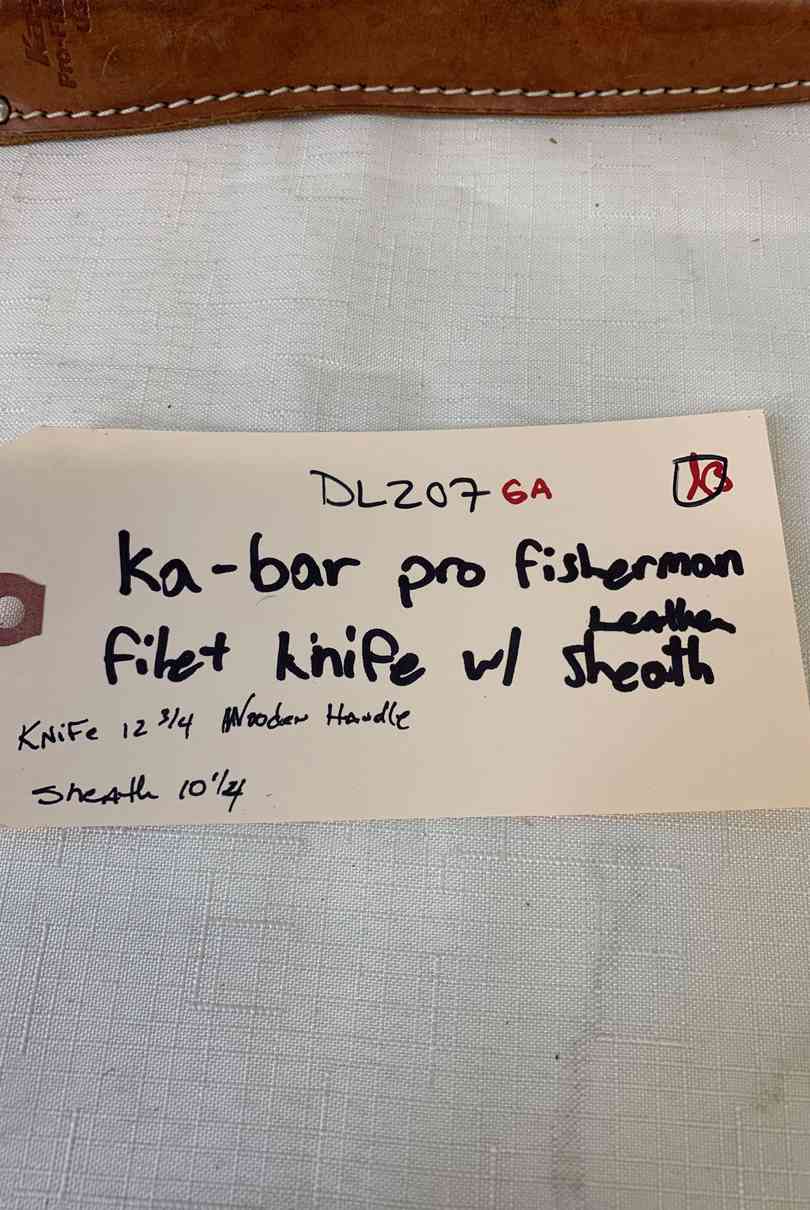 Ka
Pro-F
DL207 GA
Ka-bar pro fisherman
Leather
filet knife w/ sheath
KNiFe 12 3/4 Wooden Handle
Sheath 10 1/4